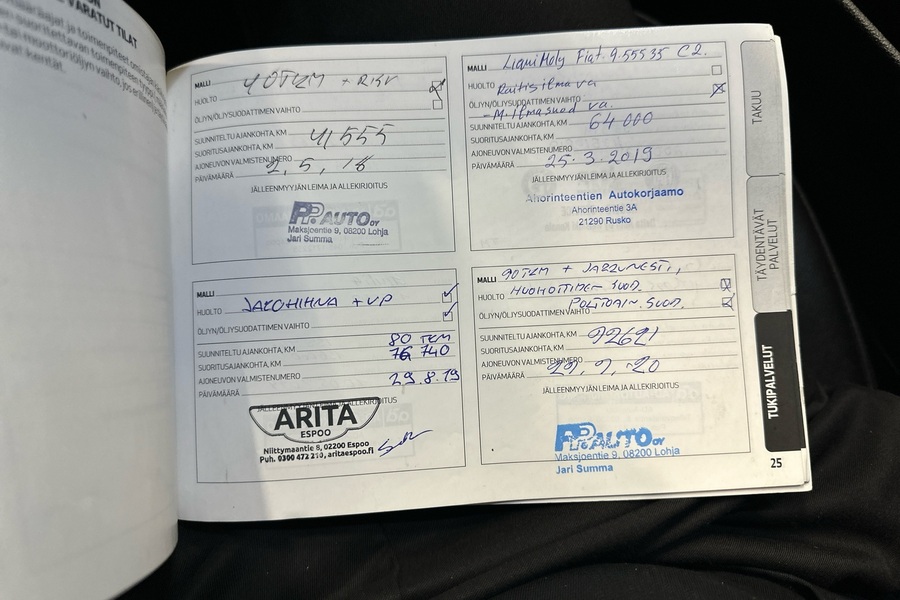 VARATUT TILAT
MALLI 40TKM + RISV
HUOLTO
ÖLJYN/ÖLJYSUODATTIMEN VAIHTO
SUUNNITELTU AJANKOHTA, KM 41555
SUORITUSAJANKOHTA, KM
AJONEUVON VALMISTENUMERO
PÄIVÄMÄÄRÄ 2,5,18
JÄLLEENMYYJÄN LEIMA JA ALLEKIRJOITUS
PP.AUTO OY
Maksjoentie 9, 08200 Lohja
Jari Summa
MALLI LiquiMoly Fiat 9.55535 C2.
HUOLTO Raitisilma va
ÖLJYN/ÖLJYSUODATTIMEN VAIHTO
-M.Ilmasuod va.
SUUNNITELTU AJANKOHTA, KM 64 000
SUORITUSAJANKOHTA, KM
AJONEUVON VALMISTENUMERO
PÄIVÄMÄÄRÄ 25.3.2019
JÄLLEENMYYJÄN LEIMA JA ALLEKIRJOITUS
Ahorinteentien Autokorjaamo
Ahorinteentie 3A
21290 Rusko
MALLI
HUOLTO JAKOHIHNA + VP
ÖLJYN/ÖLJYSUODATTIMEN VAIHTO
80 TKM
SUUNNITELTU AJANKOHTA, KM 76 740
SUORITUSAJANKOHTA, KM
AJONEUVON VALMISTENUMERO 29.8.19
PÄIVÄMÄÄRÄ
JÄLLEENMYYJÄN LEIMA JA ALLEKIRJOITUS
ARITA
ESPOO
Niittymaantie 8, 02200 Espoo
Puh. 0300 472 210, aritaespoo.fi
MALLI 90TKM + JARRUNESTE,
HUOLTO HUONEILMAN SUOD.
POLTTOAIN. SUOD.
ÖLJYN/ÖLJYSUODATTIMEN VAIHTO
SUUNNITELTU AJANKOHTA, KM 92621
SUORITUSAJANKOHTA, KM
AJONEUVON VALMISTENUMERO
PÄIVÄMÄÄRÄ 20
JÄLLEENMYYJÄN LEIMA JA ALLEKIRJOITUS
PP.AUTO OY
Maksjoentie 9, 08200 Lohja
Jari Summa
TAKUU
TÄYDENTÄVÄT
PALVELUT
TUKIPALVELUT
25